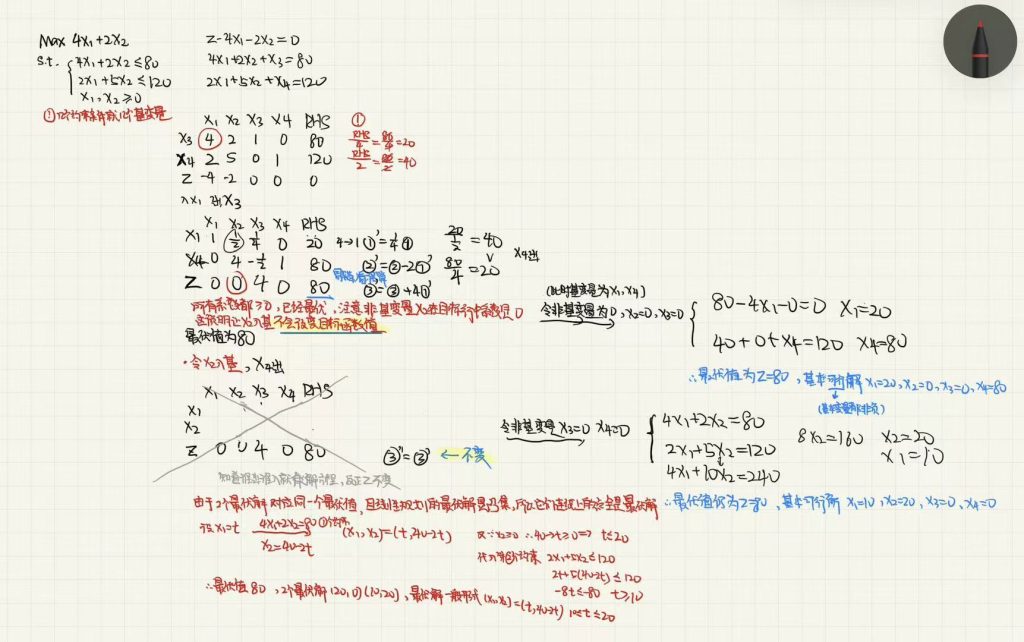 Max 4x₁+2x₂
s.t. { 4x₁+2x₂≤80
2x₁+5x₂≤120
x₁,x₂≥0
z-4x₁-2x₂=0
4x₁+2x₂+x₃=80
2x₁+5x₂+x₄=120
x₁ x₂ x₃ x₄ RHS
x₃ 4 2 1 0 80
x₄ 2 5 0 1 120
z -4 -2 0 0 0
①
RHS/4=80/4=20
RHS/2= =40
入x₁ 出x₃
x₁ x₂ x₃ x₄ RHS
x₁ 1 1/2 1/4 0 20
x₄ 0 4 -1/2 1 80
z 0 0 4 0 80
4→1 ①'=1/4①
②'=②-2①'
③'=③+4①'
20/(1/2)=40
∨
80/4=20
x₄出
所有系数都≥0,已经最优,注意非基变量x₂在目标行中系数是0
这说明让x₂入基不会改变目标函数值
最优值为80
(此时基变量为x₁,x₄)
令非基变量为0,x₂=0,x₃=0
{ 80-4x₁-0=0 x₁=20
40+0+x₄=120 x₄=80
∴最优值为z=80,基本可行解x₁=20,x₂=0,x₃=0,x₄=80
(基本变量都非负)
·令x₂入基,x₄出
x₁ x₂ x₃ x₄ RHS
x₁
x₂
z 0 0 4 0 80
③''=③' ←不变
知道谁出谁入就有解方程,反正z不变
令非基变量x₃=0 x₄=0
{ 4x₁+2x₂=80
2x₁+5x₂=120
4x₁+10x₂=240
8x₂=160 x₂=20
x₁=10
∴最优值仍为z=80,基本可行解 x₁=10,x₂=20,x₃=0,x₄=0
由于2个最优解对应同一个最优值,且线性规划的最优解是凸集,所以它们连线上所有点都是最优解
设x₁=t 4x₁+2x₂=80
x₂=40-2t
(x₁,x₂)=(t,40-2t)
又∵x₂≥0 ∴40-2t≥0⇒t≤20
代入 约束 2x₁+5x₂≤120
2t+5(40-2t)≤120
-8t≤-80 t≥10
∴最优值80,2个最优解(20,0)(10,20),最优解一般形式(x₁,x₂)=(t,40-2t) 10≤t≤20